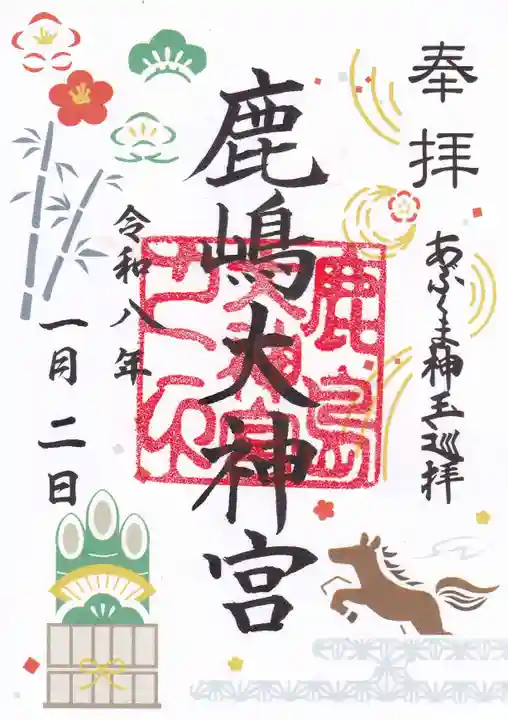 奉拝
あぶくま神玉巡拝
鹿嶋大神宮
令和八年
一月二日
鹿島
大神宮